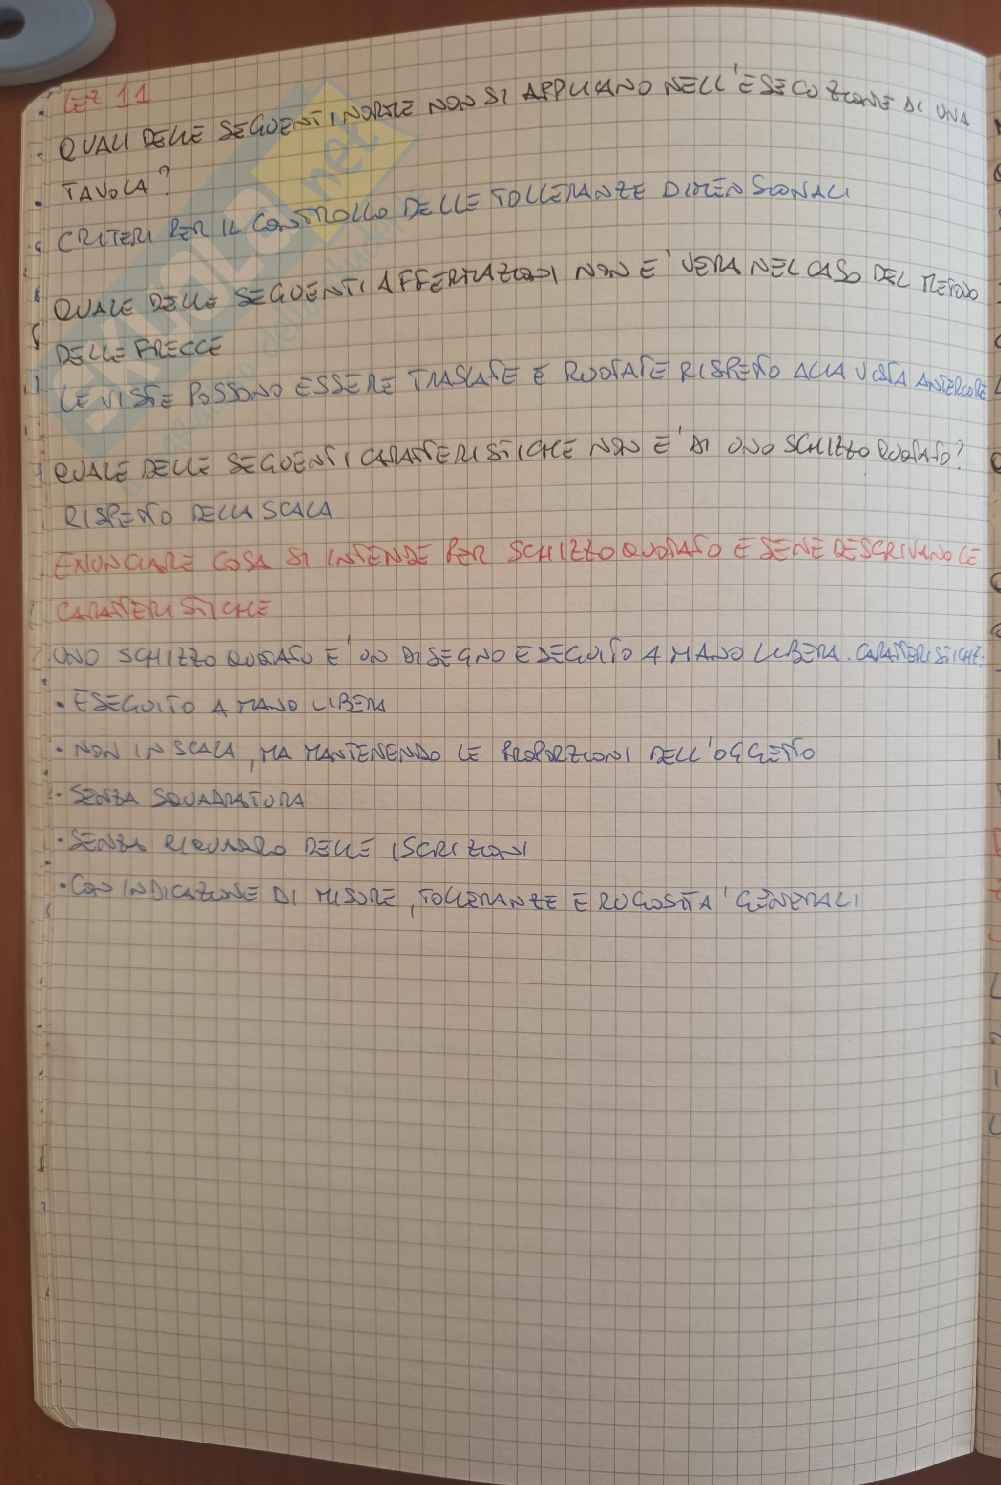 LEZ 11
QUALI DELLE SEGUENTI NORME NON SI APPLICANO NELL'ESECUZIONE DI UNA
TAVOLA?
CRITERI PER IL CONTROLLO DELLE TOLLERANZE DIMENSIONALI
QUALE DELLE SEGUENTI AFFERMAZIONI NON E' VERA NEL CASO DEL METODO
DELLE FRECCE
LE VISTE POSSONO ESSERE TRASLATE E RUOTATE RISPETTO ALLA VISTA ANTERIORE
QUALE DELLE SEGUENTI CARATTERISTICHE NON E' DI UNO SCHIZZO QUOTATO?
RISPETTO DELLA SCALA
ENUNCIARE COSA SI INTENDE PER SCHIZZO QUOTATO E SE NE DESCRIVANO LE
CARATTERISTICHE
UNO SCHIZZO QUOTATO E' UN DISEGNO ESEGUITO A MANO LIBERA. CARATTERISTICHE:
• ESEGUITO A MANO LIBERA
• NON IN SCALA, MA MANTENENDO LE PROPORZIONI DELL'OGGETTO
• SENZA SQUADRATURA
• SENZA RIQUADRO DELLE ISCRIZIONI
• CON INDICAZIONE DI MISURE, TOLLERANZE E RUGOSITA' GENERALI